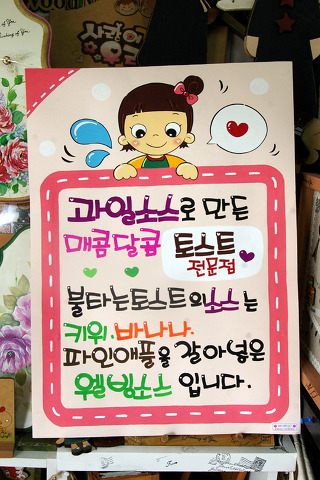 사랑이
과일소스로 만든
매콤달콤 토스트
전문점
불타는토스트의소스는
키위.바나나.
파인애플을 갈아넣은
웰빙소스 입니다.